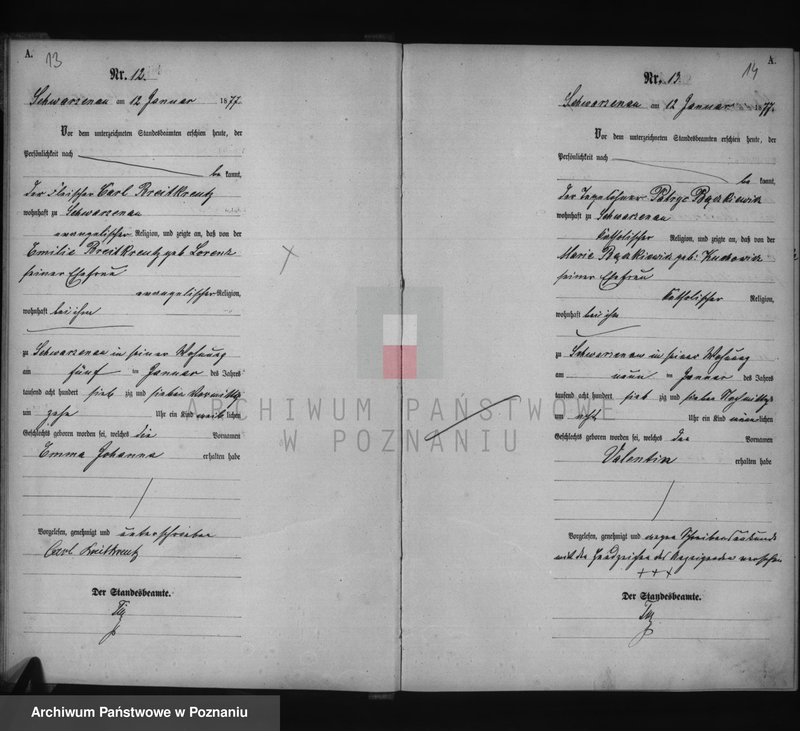 A.
13
Nr. 12.
Schwarzenau am 12 Januar 1877
Vor dem unterzeichneten Standesbeamten erschien heute, der
Persönlichkeit nach
be kannt,
der Fleischer Carl Breitkreutz
wohnhaft zu Schwarzenau
evangelischer Religion, und zeigte an, daß von der
Emilie Breitkreutz geb Lorenz
seiner Ehefrau
evangelischer Religion,
wohnhaft bei ihm
zu Schwarzenau in seiner Wohnung
am fünf ten Januar des Jahres
tausend acht hundert sieb zig und sieben Vormittags
um zehn Uhr ein Kind weib lichen
Geschlechts geboren worden sei, welches die Vornamen
Emma Johanna erhalten habe
Vorgelesen, genehmigt und unterschrieben
Carl Breitkreutz
Der Standesbeamte.
A.
14
Nr. 13.
Schwarzenau am 12 Januar 1877.
Vor dem unterzeichneten Standesbeamten erschien heute, der
Persönlichkeit nach
be kannt,
der Tagelöhner
wohnhaft zu Schwarzenau
katholischer Religion, und zeigte an, daß von der
Marie geb:
seiner Ehefrau
katholischer Religion,
wohnhaft bei ihm
zu Schwarzenau in seiner Wohnung
am neun ten Januar des Jahres
tausend acht hundert sieb zig und sieben Nachmittags
um acht Uhr ein Kind männ lichen
Geschlechts geboren worden sei, welches den Vornamen
Valentin erhalten habe
Vorgelesen, genehmigt und wegen Schreibensunkunde
mit den Handzeichen des Anzeigenden versehen
+++
Der Standesbeamte.
ARCHIWUM PAŃSTWOWE
W POZNANIU
Archiwum Państwowe w Poznaniu